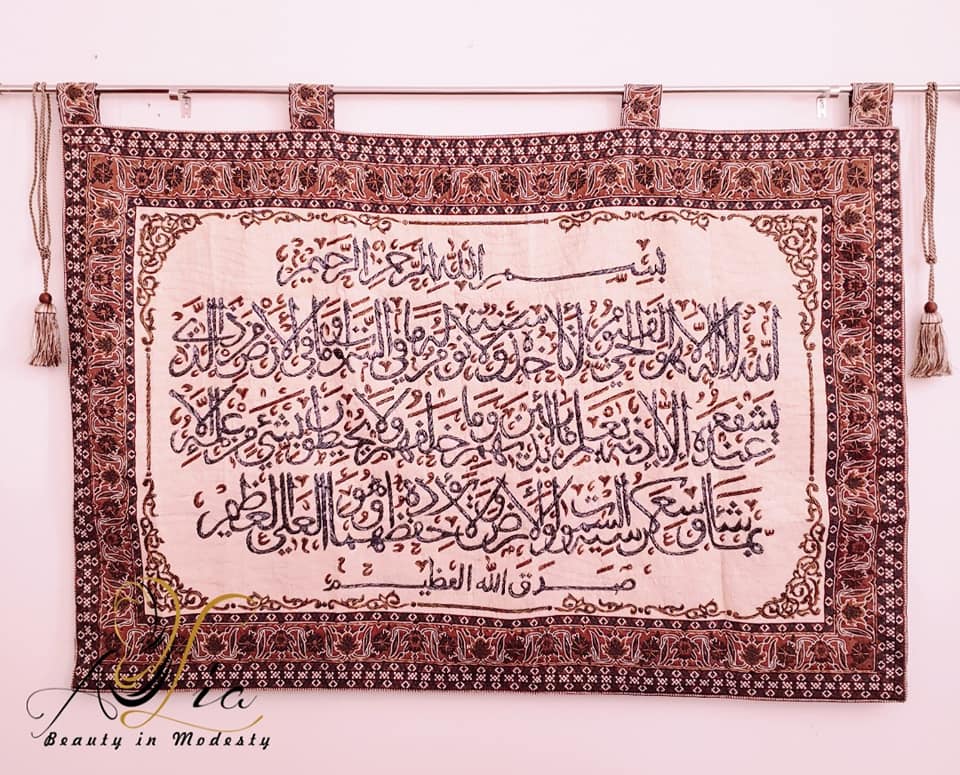 بسم الله الرحمن الرحيم
الله لا إله إلا هو الحي القيوم لا تأخذه سنة ولا نوم له ما في السموات وما في الأرض من ذا الذي
يشفع عنده إلا بإذنه يعلم ما بين أيديهم وما خلفهم ولا يحيطون بشيء من علمه إلا
بما شاء وسع كرسيه السموات والأرض ولا يؤده حفظهما وهو العلي العظيم
صدق الله العظيم
Beauty in Modesty